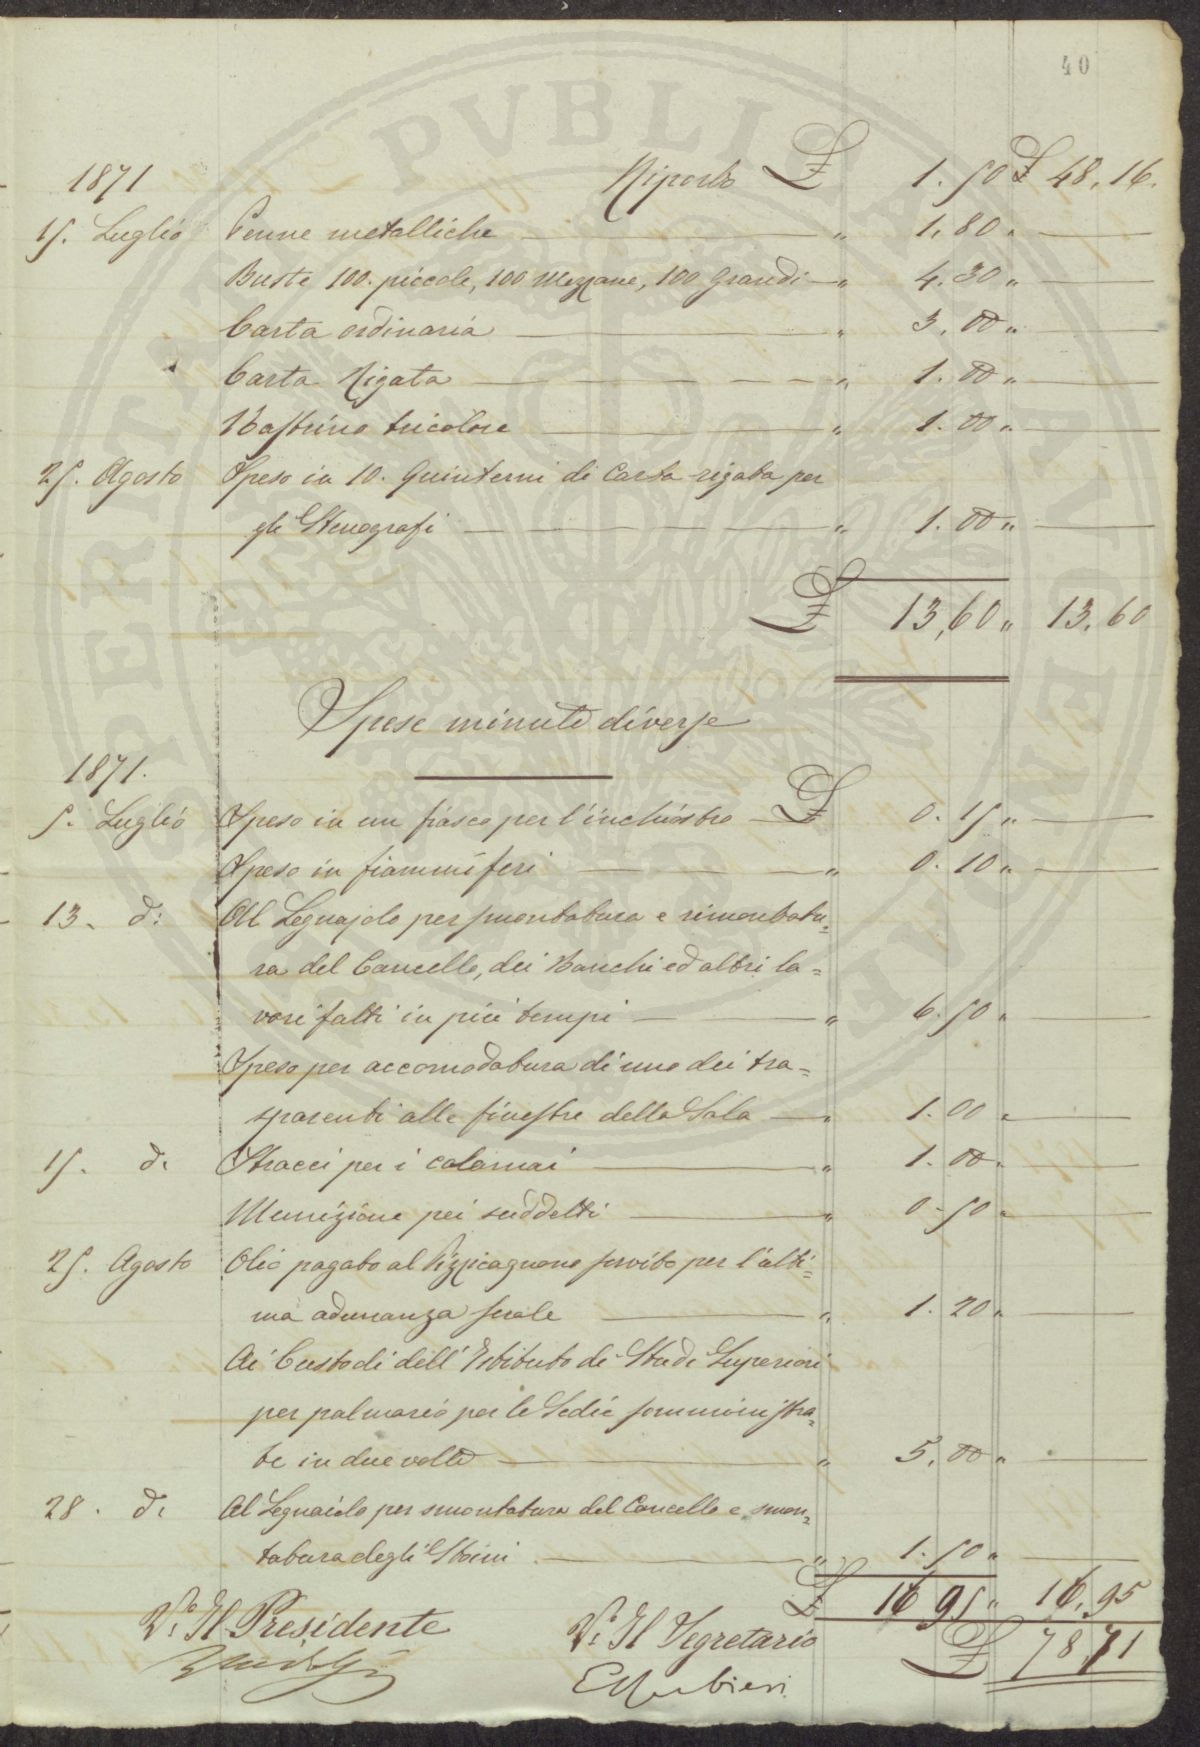 40
1871 Riporto £ 1.50 £ 48.16.
15. Luglio Penne metalliche — " 1.80 " —
Buste 100. piccole, 100 Mezzane, 100 Grandi — " 4.30 " —
Carta ordinaria — " 3.00 " —
Carta Rigata — " 1.00 " —
Nastrino tricolore — " 1.00 " —
25. Agosto Speso in 10. Quinterni di Carta rigata per
gli Stenografi — " 1.00 " —
£ 13,60 " 13.60
Spese minute diverse
1871.
5. Luglio Speso in un fiasco per l'inchiostro — £ 0.15 " —
Speso in fiammiferi — " 0.10 " —
13. do: Al Legnajolo per smontatura e rimontatu=
ra del Cancello, dei Banchi ed altri la=
vori fatti in più tempi — " 6.50 " —
Speso per accomodatura di uno dei tra=
sparenti alle finestre della Sala — " 1.00 " —
15. do. Stracci per i calamai — " 1.00 " —
Munizione pei suddetti — " 0.50 " —
25. Agosto Olio pagato al Pizzicagnono servito per l'ulti=
ma adunanza serale — " 1.20 " —
Ai Custodi dell'Istituto di Studi Superiori
per palmario per le Sedie somministra=
te in due volte — " 5.00 " —
28. do. Al Legnaiolo per smontatura del Cancello e smon=
tatura degli Stoini — " 1.50 " —
£ 16 95 " 16.95
Vo. Il Presidente Vo. Il Segretario £ 78,71
Barbieri
PVBLIC